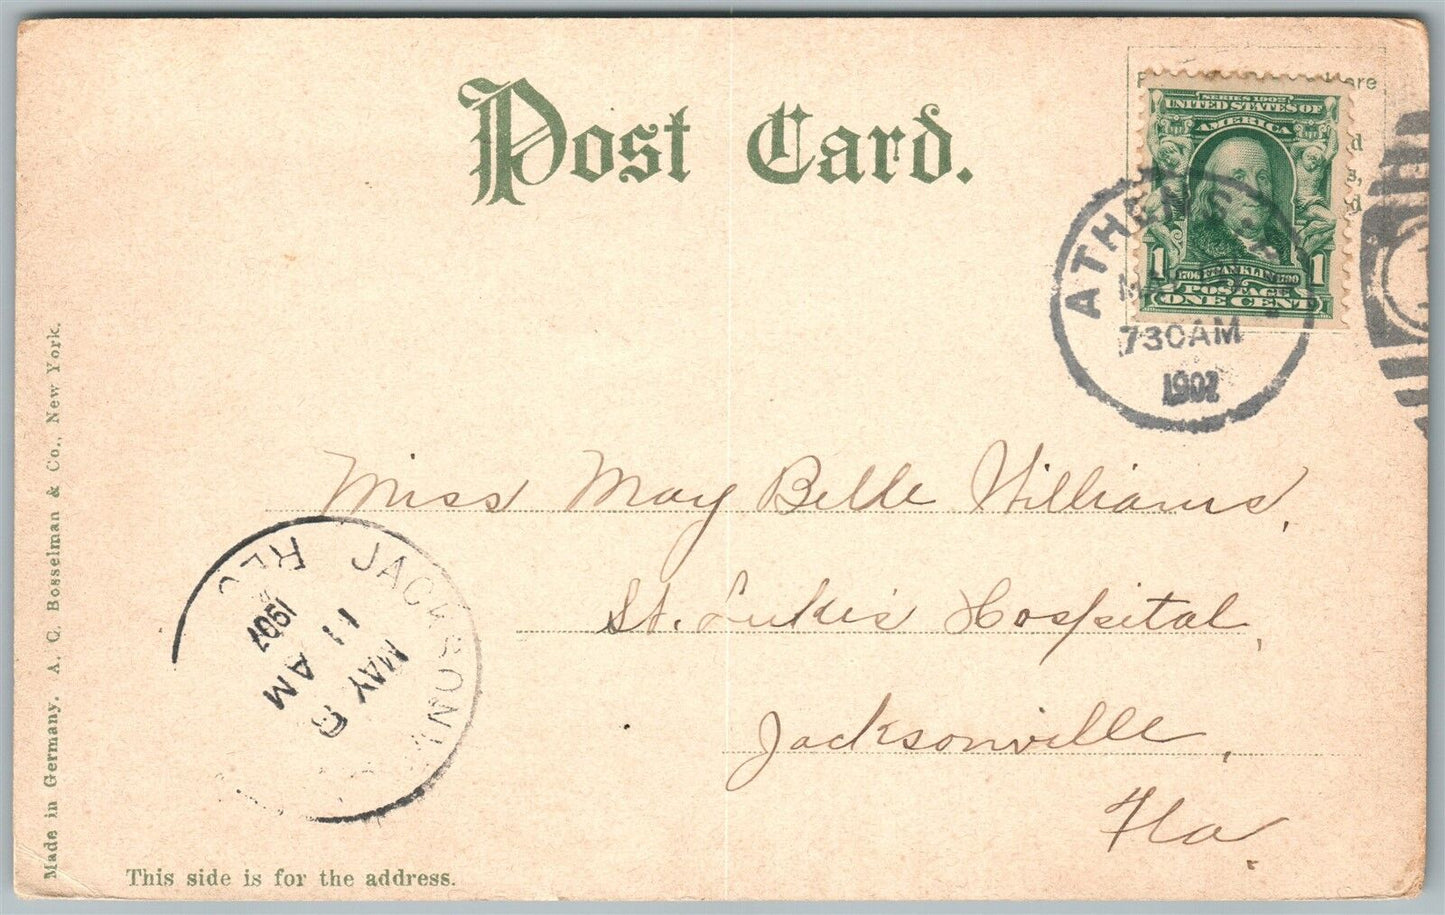 Post Card.
SERIES 1902
UNITED STATES OF
AMERICA
1 1
1706 FRANKLIN 1790
POSTAGE
ONE CENT
ATHENS
730AM
Miss May Belle Williams,
St. Luke's Hospital,
Jacksonville,
Fla.
JACKSONV
REC
MAY 6
11 AM
1907
Made in Germany. A. C. Bosselman & Co., New York.
This side is for the address.